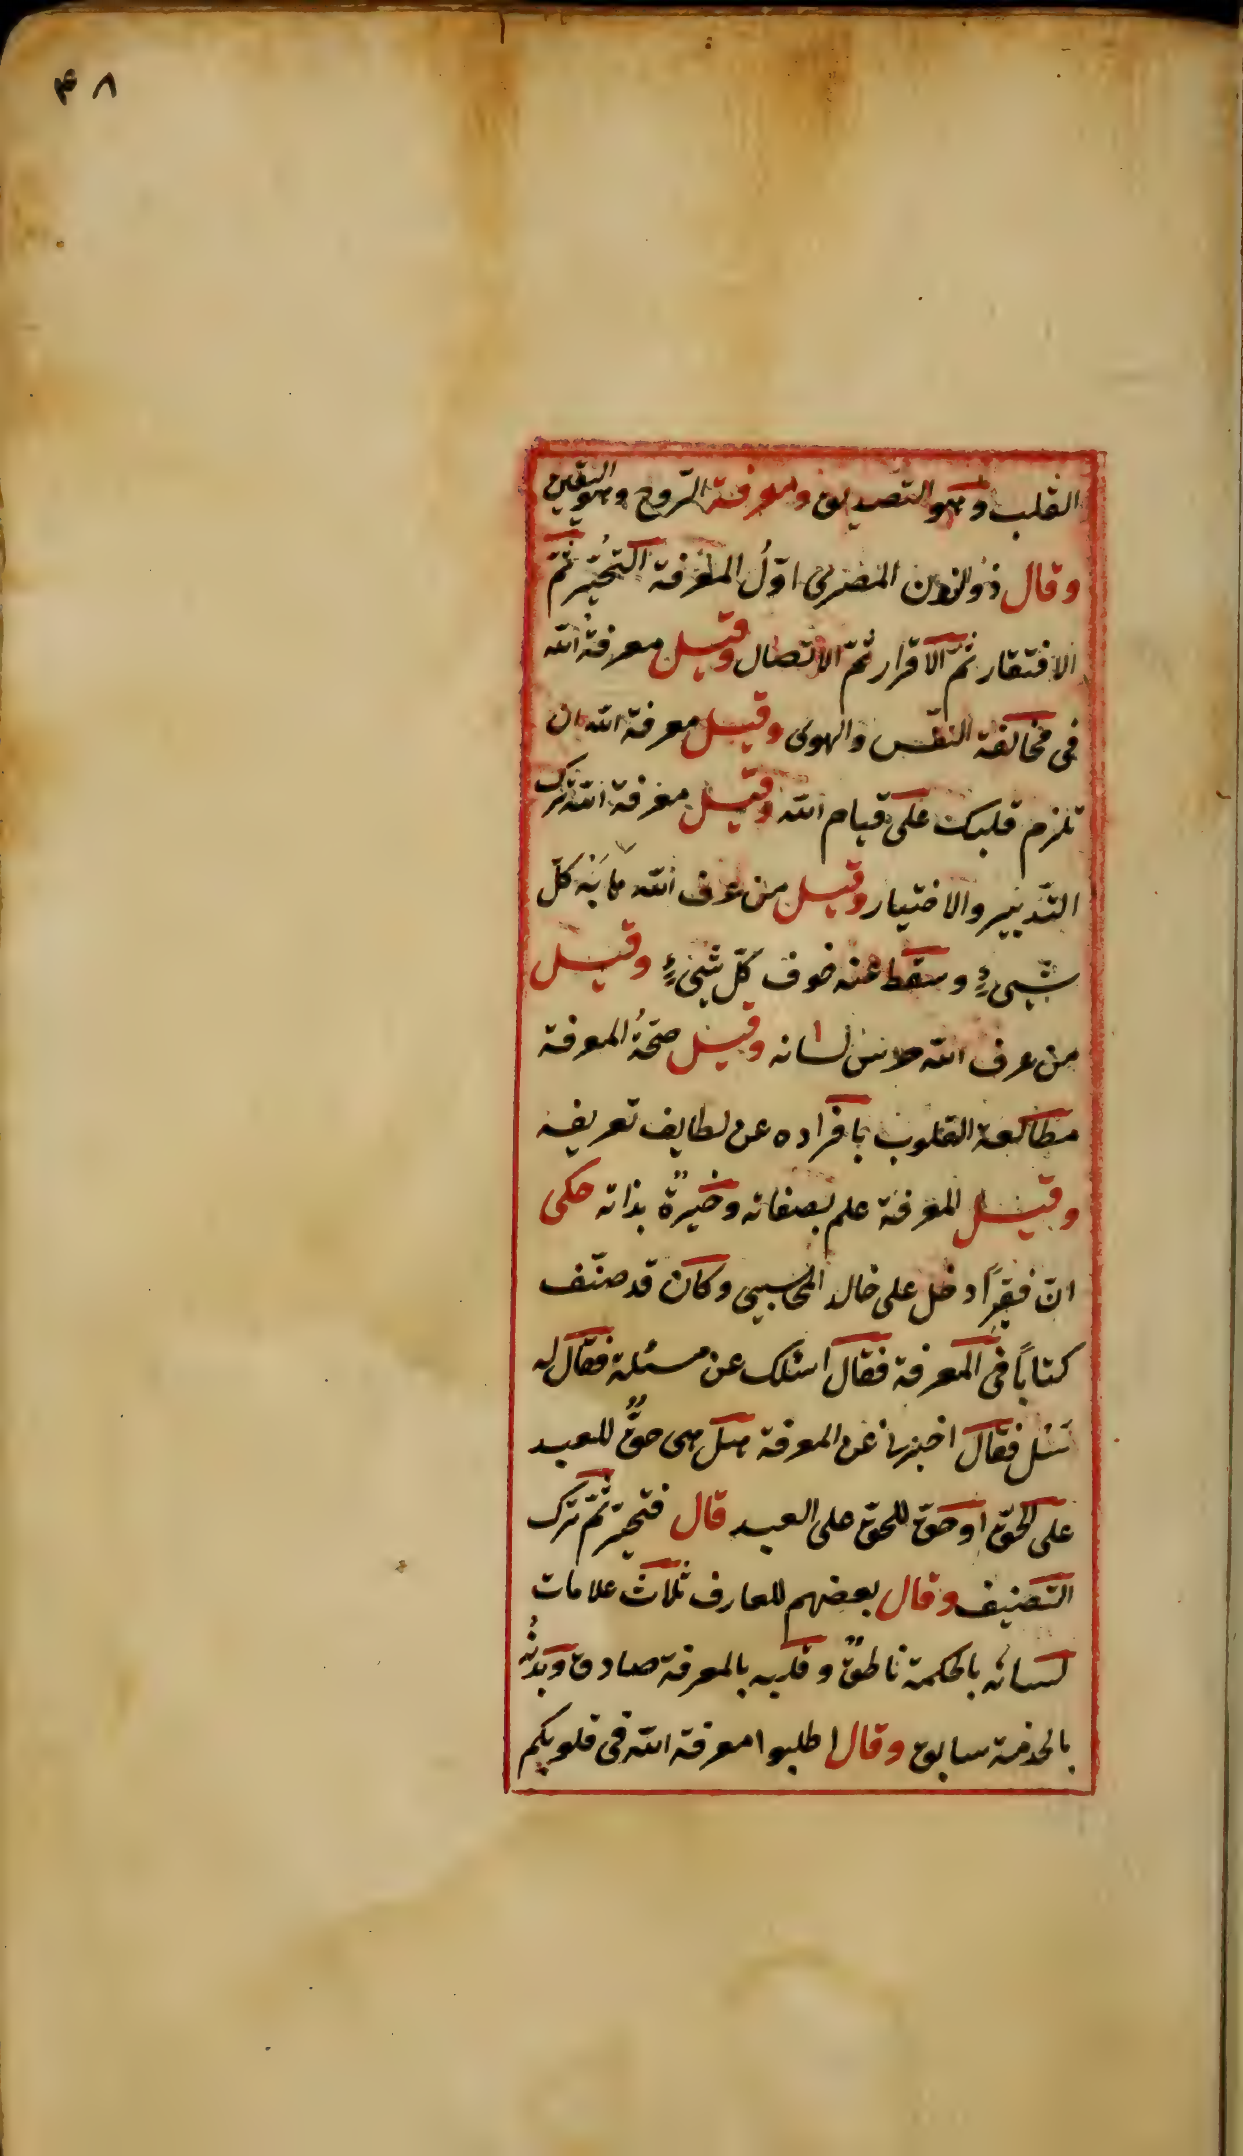 ۴۸
القلب وهو التصديق ومعرفة الرّوح وهو اليقين
وقال ذوالنون المصرى اوّلُ المعرفة التحيّر ثمّ
الافتقار ثمّ الاقرار ثمّ الاتصال وقيل معرفة الله
فى مخالفة النفس والهوى وقيل معرفة الله ان
تلزم قلبك على قيام الله وقيل معرفة الله ترك
التّدبير والاختيار وقيل من عرف الله هابَهُ كلّ
شيىءٍ وسقط عنه خوف كلّ شيىءٍ وقيل
من عرف الله خرس لسانه وقيل صحّةُ المعرفة
مطالعة القلوب بافراده عن لطايف تعريفه
وقيل المعرفة علم بصفاته وخيرةٌ بذاته حكى
انّ فقيرًا دخل على خالد المحاسبى وكان قد صنّف
كتابًا فى المعرفة فقال اسئلك عن مسئلة فقال له
سَئل فقال اخبرنى عن المعرفة هل هى حقٌّ للعبد
على الحقّ او حقّ للحقّ على العبد قال فتحيّر ثمّ ترك
التصنيف وقال بعضهم للعارف ثلاث علامات
لسانه بالحكمة ناطقٌ وقلبه بالمعرفة صادق وبدنُه
بالخدمة سابق وقال اطلبوا معرفة الله فى قلوبكم